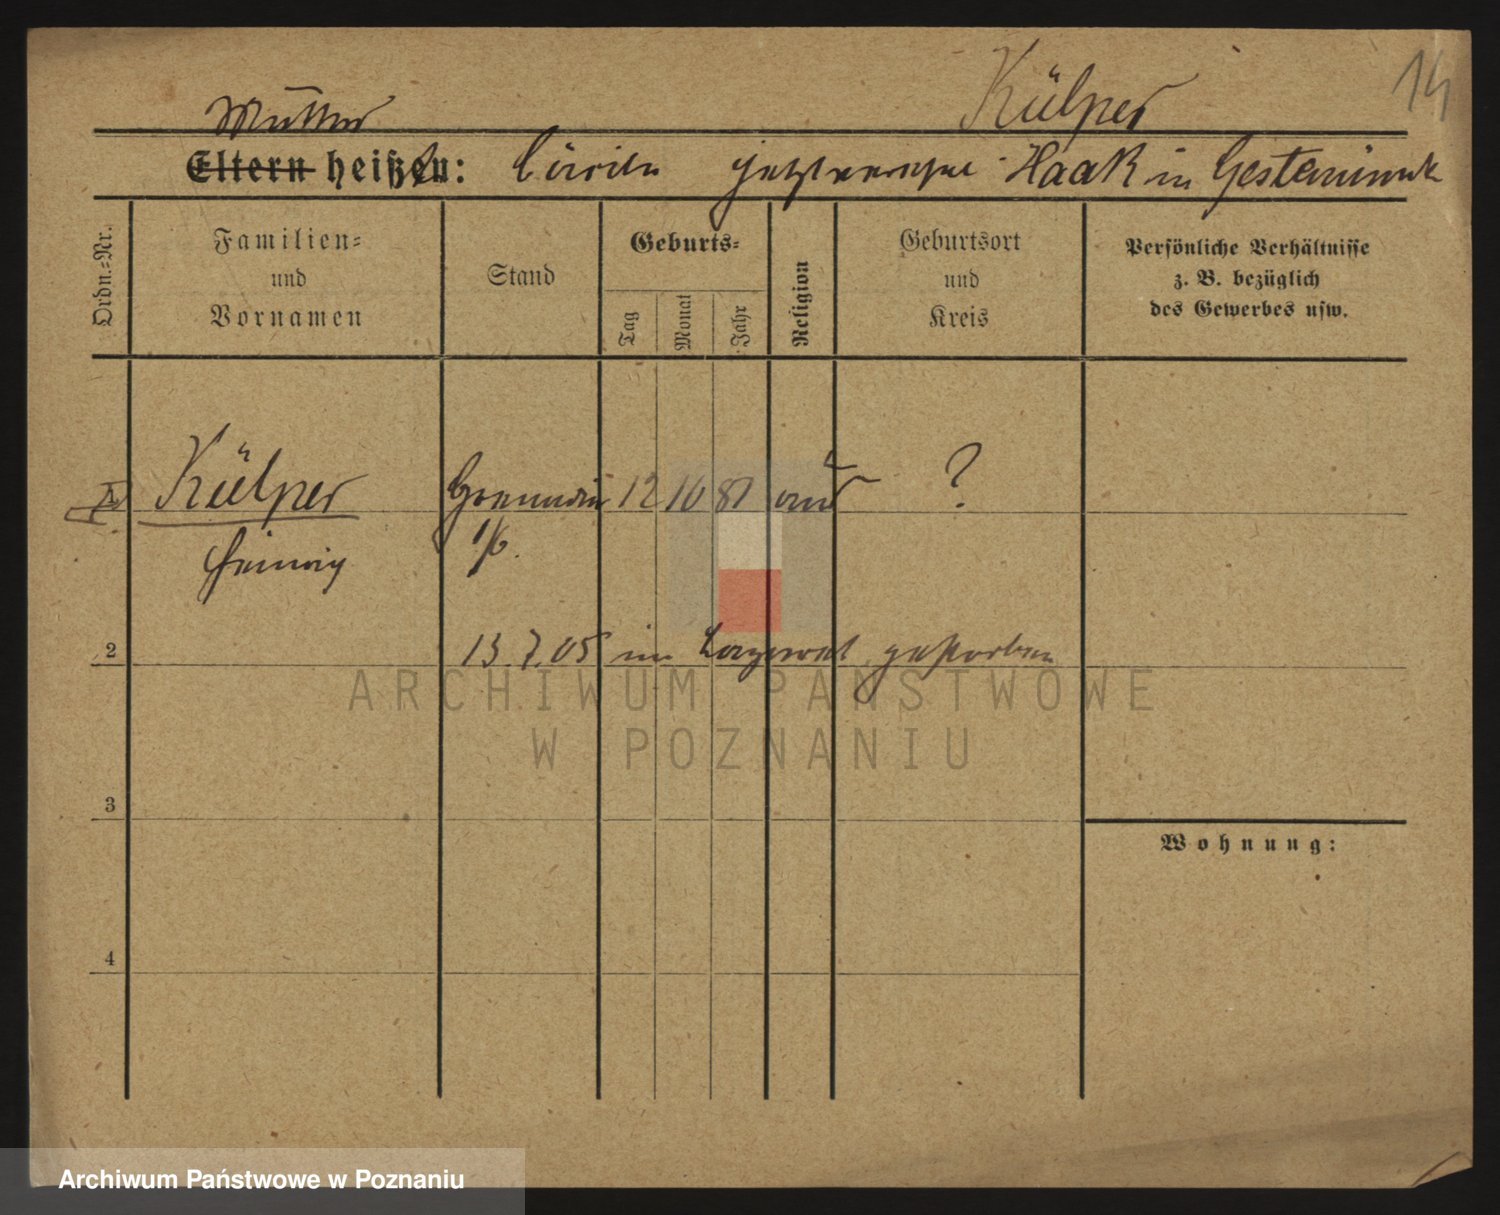 14
Külper
Mutter
Eltern heißt: Cäcilie jetzt verehel. Haak in Gestemünde
Ordn.-Nr.
Familien-
und
Vornamen
Stand
Geburts-
Tag
Monat
Jahr
Religion
Geburtsort
und
Kreis
Persönliche Verhältnisse
z. B. bezüglich
des Gewerbes usw.
Külper Grenadier 12 10 81 ?
Heinrich 1/6.
2 13.7.05 im Lazarett gestorben
ARCHIWUM PAŃSTWOWE
W POZNANIU
3
Wohnung:
4
Archiwum Państwowe w Poznaniu